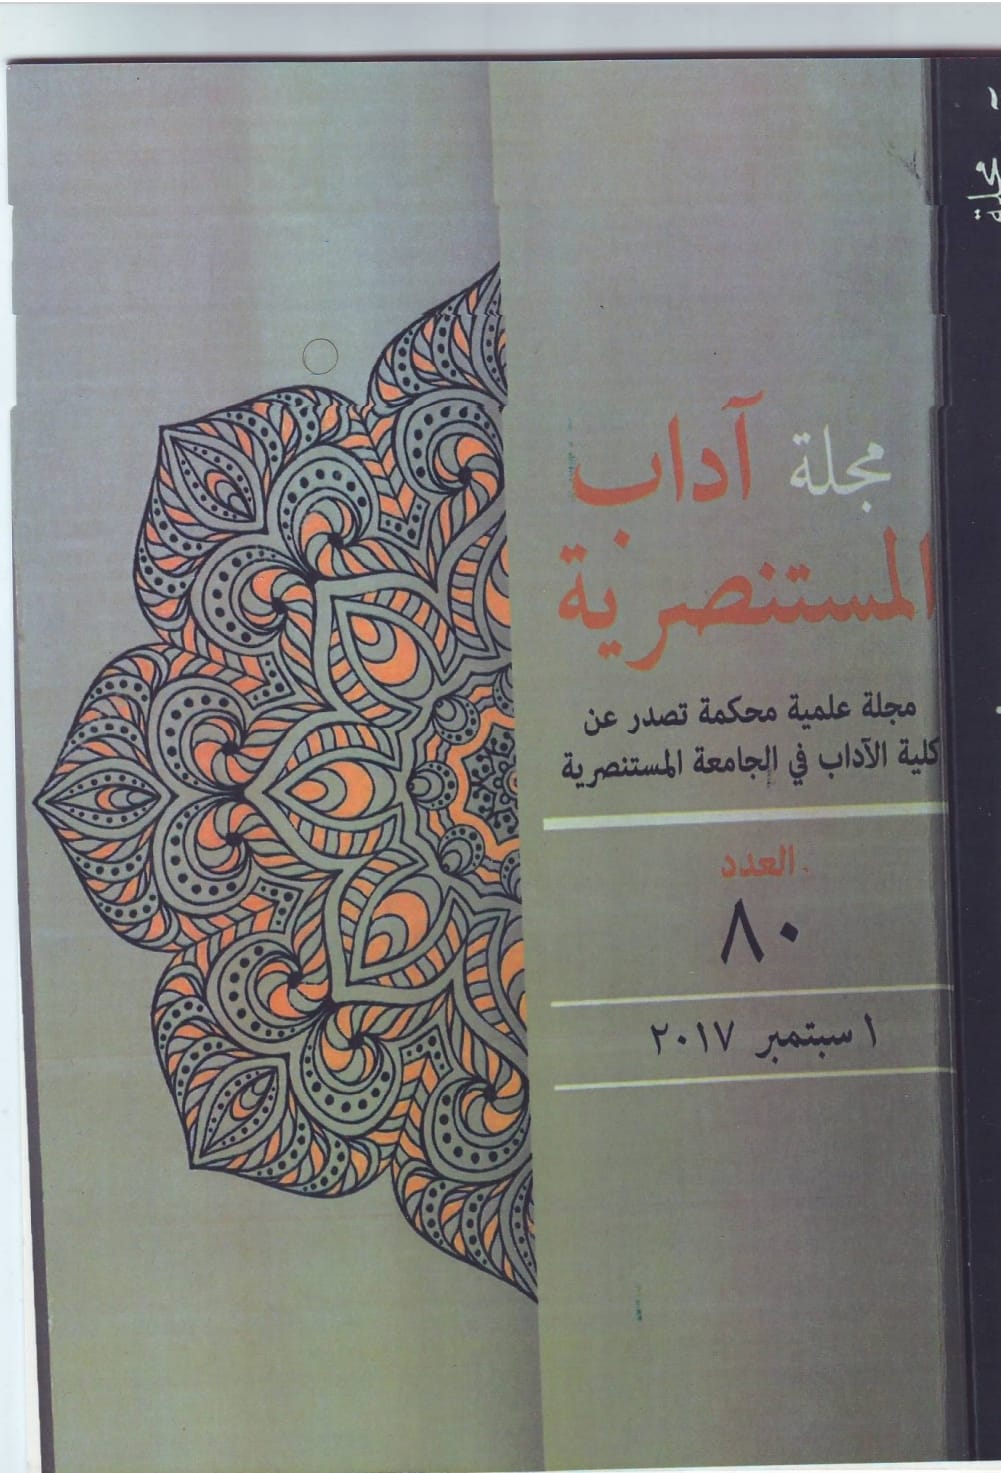 مجلة آداب
المستنصرية
مجلة علمية محكمة تصدر عن
كلية الآداب في الجامعة المستنصرية
العدد
٨٠
١ سبتمبر ٢٠١٧
مجلة